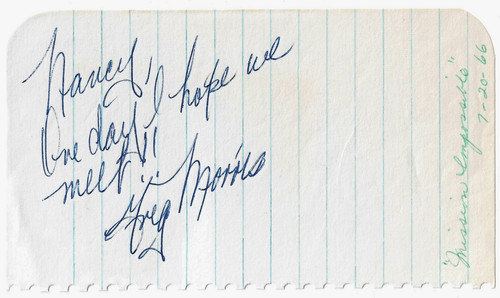 Nancy,
One day I hope we
meet!!
Greg Morris
"Mission Impossible"
7-20-66